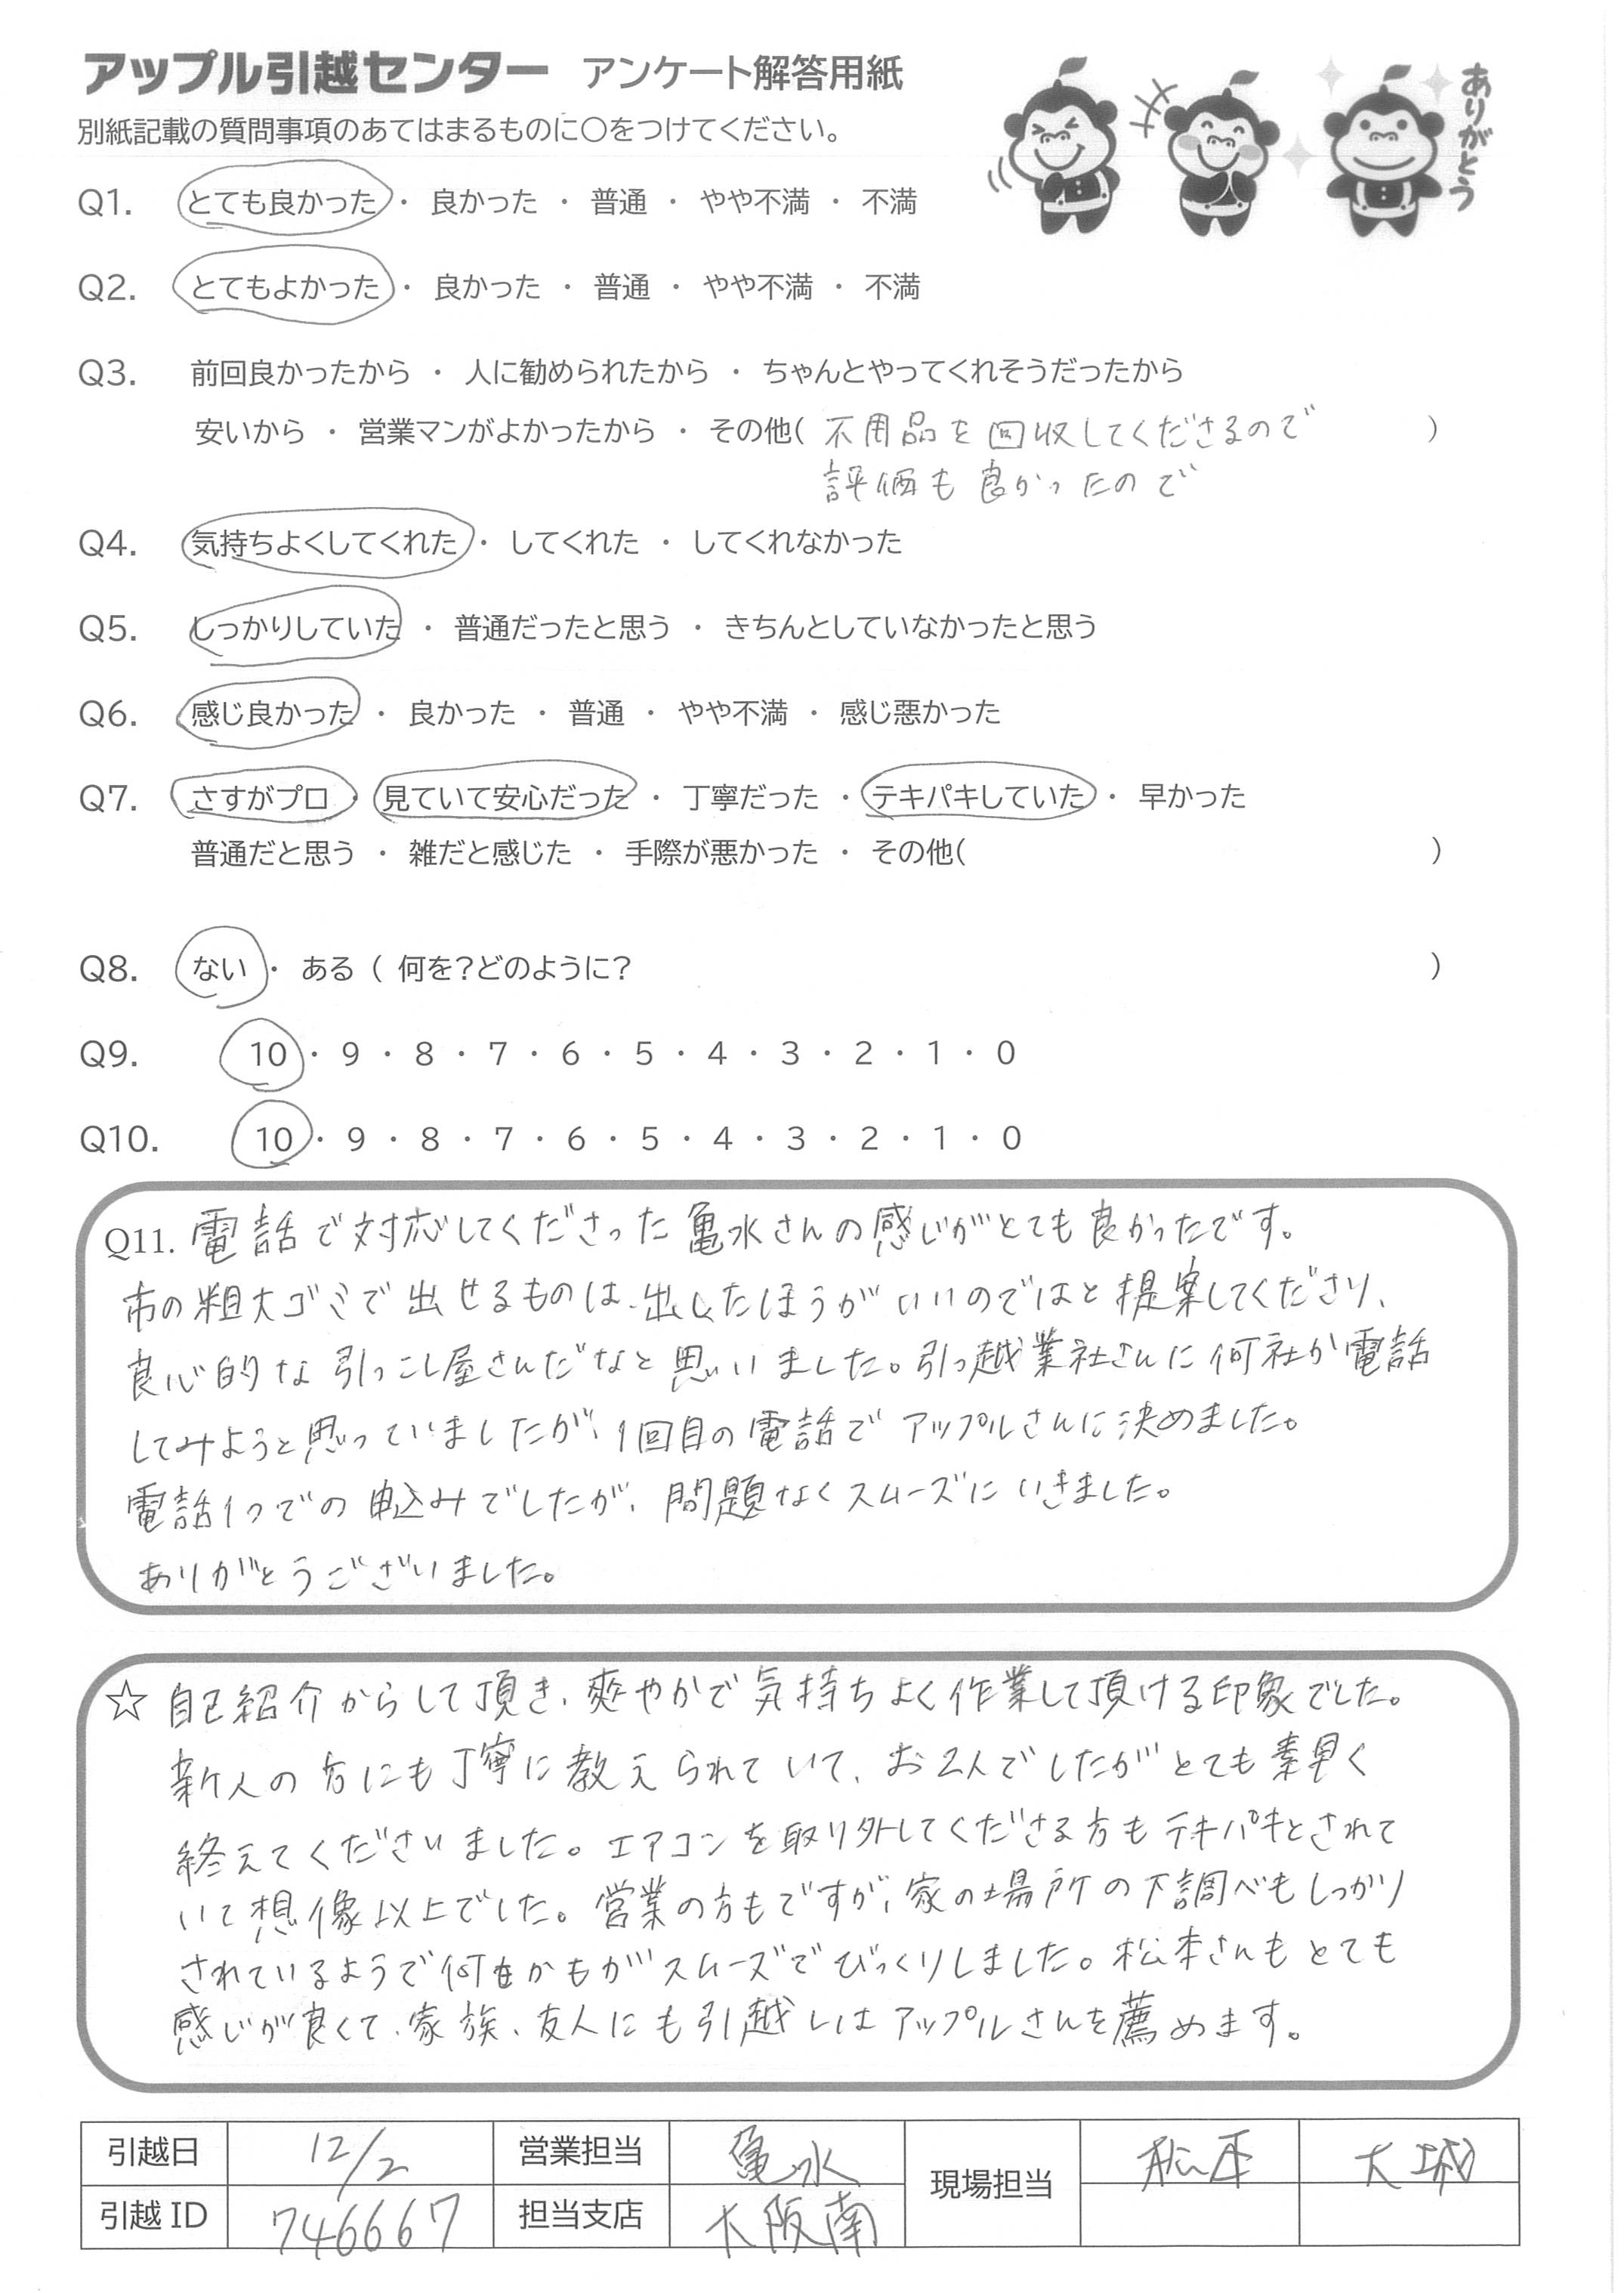 アップル引越センター アンケート解答用紙
ありがとう
別紙記載の質問事項のあてはまるものに○をつけてください。
Q1. とても良かった ・ 良かった ・ 普通 ・ やや不満 ・ 不満
Q2. とてもよかった ・ 良かった ・ 普通 ・ やや不満 ・ 不満
Q3. 前回良かったから ・ 人に勧められたから ・ ちゃんとやってくれそうだったから
安いから ・ 営業マンがよかったから ・ その他( 不用品を回収してくださるので )
評価も良かったので
Q4. 気持ちよくしてくれた ・ してくれた ・ してくれなかった
Q5. しっかりしていた ・ 普通だったと思う ・ きちんとしていなかったと思う
Q6. 感じ良かった ・ 良かった ・ 普通 ・ やや不満 ・ 感じ悪かった
Q7. さすがプロ ・ 見ていて安心だった ・ 丁寧だった ・ テキパキしていた ・ 早かった
普通だと思う ・ 雑だと感じた ・ 手際が悪かった ・ その他( )
Q8. ない ・ ある ( 何を?どのように? )
Q9. 10 ・ 9 ・ 8 ・ 7 ・ 6 ・ 5 ・ 4 ・ 3 ・ 2 ・ 1 ・ 0
Q10. 10 ・ 9 ・ 8 ・ 7 ・ 6 ・ 5 ・ 4 ・ 3 ・ 2 ・ 1 ・ 0
Q11. 電話で対応してくださった亀水さんの感じがとても良かったです。
市の粗大ゴミで出せるものは、出したほうがいいのではと提案してくださり、
良心的な引っこし屋さんだなと思いました。引っ越業社さんに何社か電話
してみようと思っていましたが、1回目の電話でアップルさんに決めました。
電話1つでの申込みでしたが、問題なくスムーズにいきました。
ありがとうございました。
☆ 自己紹介からして頂き、爽やかで気持ちよく作業して頂ける印象でした。
新人の方にも丁寧に教えられていて、お2人でしたがとても素早く
終えてくださいました。エアコンを取り外してくださる方もテキパキとされて
いて想像以上でした。営業の方もですが、家の場所の下調べもしっかり
されているようで何もかもがスムーズでびっくりしました。松本さんもとても
感じが良くて、家族、友人にも引越しはアップルさんを薦めます。
引越日 12/2 営業担当 亀水 現場担当 松本 大城
引越ID 746667 担当支店 大阪南